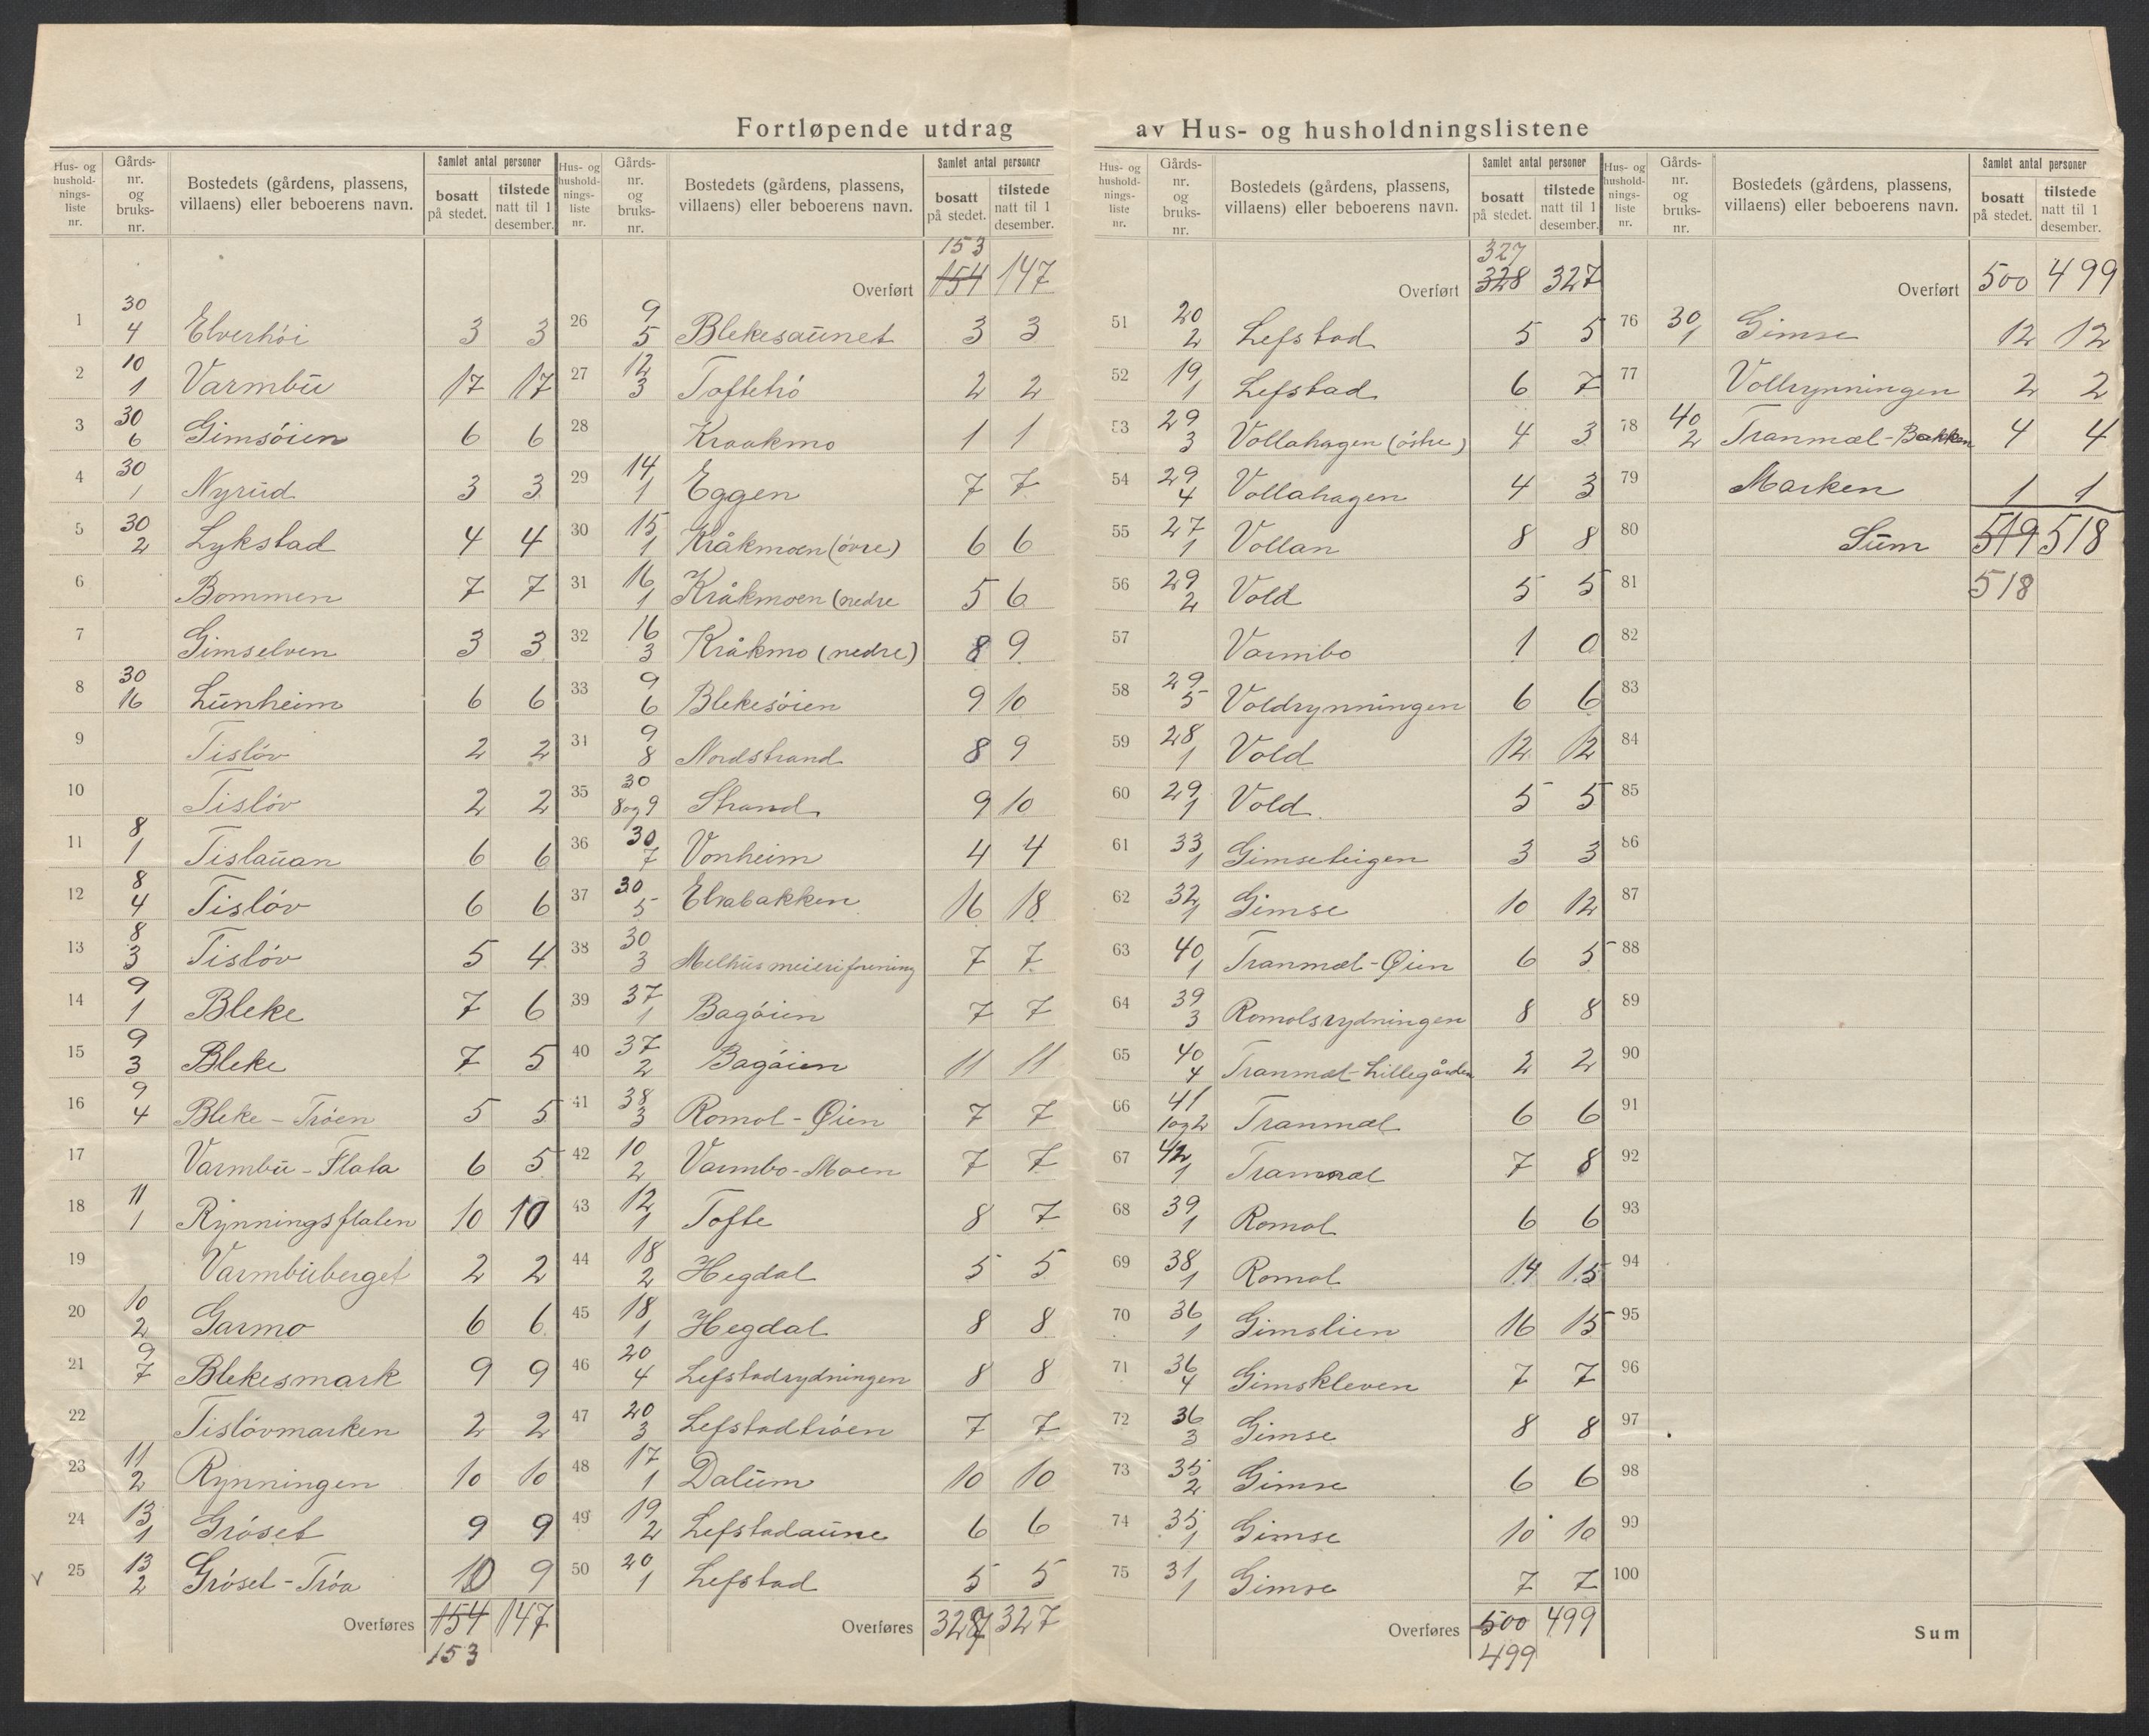 Fortløpende utdrag av Hus- og husholdningslistene
Hus- og husholdnings-liste nr. | Gårds-nr. og bruks-nr. | Bostedets (gårdens, plassens, villaens) eller beboerens navn. | Samlet antal personer | bosatt på stedet. | tilstede natt til 1 desember.
1 30/4 Elverhöi 3 3
2 10/1 Varmbū 17 17
3 30/6 Gimsöien 6 6
4 30/1 Nyrūd 3 3
5 30/2 Lykstad 4 4
6 Bommen 7 7
7 Gimselven 3 3
8 30/16 Lūnheim 6 6
9 Tislöv 2 2
10 Tislöv 2 2
11 8/1 Tislaūan 6 6
12 8/4 Tislöv 6 6
13 8/3 Tislöv 5 4
14 9/1 Bleke 7 6
15 9/3 Bleke 7 5
16 9/4 Bleke - Tröen 5 5
17 Varmbū - Flata 6 5
18 11/1 Rynningsflaten 10 10
19 Varmbūberget 2 2
20 10/2 Garmo 6 6
21 9/7 Blekesmark 9 9
22 Tislövmarken 2 2
23 11/2 Rynningen 10 10
24 13/1 Gröset 9 9
25 13/2 Gröset - Tröa 10 9
Overføres 154 147
153
Hus- og husholdnings-liste nr. | Gårds-nr. og bruks-nr. | Bostedets (gårdens, plassens, villaens) eller beboerens navn. | Samlet antal personer | bosatt på stedet. | tilstede natt til 1 desember.
153
Overført 154 147
26 9/5 Blekesaūnet 3 3
27 12/3 Toftetrö 2 2
28 Kraakmo 1 1
29 14/1 Eggen 7 7
30 15/1 Kråkmoen (övre) 6 6
31 16/1 Kråkmoen (nedre 5 6
32 16/3 Kråkmo (nedre) 8 9
33 9/6 Blekesöien 9 10
34 9/8 Nordstrand 8 9
35 30/8 og 9 Strand 9 10
36 30/7 Vonheim 4 4
37 30/5 Elvabakken 16 18
38 30/3 Melhus meieriforening 7 7
39 37/1 Bagöien 7 7
40 37/2 Bagöien 11 11
41 38/3 Romol - Øien 7 7
42 10/2 Varmbo - Moen 7 7
43 12/1 Tofte 8 7
44 18/2 Hegdal 5 5
45 18/1 Hegdal 8 8
46 20/4 Lefstadrydningen 8 8
47 20/3 Lefstadtröen 7 7
48 17/1 Dalūm 10 10
49 19/2 Lefstadaūne 6 6
50 20/1 Lefstad 5 5
Overføres 327 327
Hus- og husholdnings-liste nr. | Gårds-nr. og bruks-nr. | Bostedets (gårdens, plassens, villaens) eller beboerens navn. | Samlet antal personer | bosatt på stedet. | tilstede natt til 1 desember.
327
Overført 328 327
51 20/2 Lefstad 5 5
52 19/1 Lefstad 6 7
53 29/3 Vollahagen (östre) 4 3
54 29/4 Vollahagen 4 3
55 27/1 Vollan 8 8
56 29/2 Vold 5 5
57 Varmbo 1 0
58 29/5 Voldrynningen 6 6
59 28/1 Vold 12 12
60 29/1 Vold 5 5
61 33/1 Gimseteigen 3 3
62 32/1 Gimse 10 12
63 40/1 Tranmæl - Øien 6 5
64 39/3 Romolsrydningen 8 8
65 40/4 Tranmæl - Lillegården 2 2
66 41/1 og 2 Tranmæl 6 6
67 42/1 Tranmæl 7 8
68 39/1 Romol 6 6
69 38/1 Romol 14 15
70 36/1 Gimslien 16 15
71 36/4 Gimskleven 7 7
72 36/3 Gimse 8 8
73 35/2 Gimse 6 6
74 35/1 Gimse 10 10
75 31/1 Gimse 7 7
Overføres 500 499
499
Hus- og husholdnings-liste nr. | Gårds-nr. og bruks-nr. | Bostedets (gårdens, plassens, villaens) eller beboerens navn. | Samlet antal personer | bosatt på stedet. | tilstede natt til 1 desember.
Overført 500 499
76 30/1 Gimse 12 12
77 Vollrynningen 2 2
78 40/2 Tranmæl - Bakken 4 4
79 Marken 1 1
80 Sūm 519 518
81 518
82
83
84
85
86
87
88
89
90
91
92
93
94
95
96
97
98
99
100
Sum